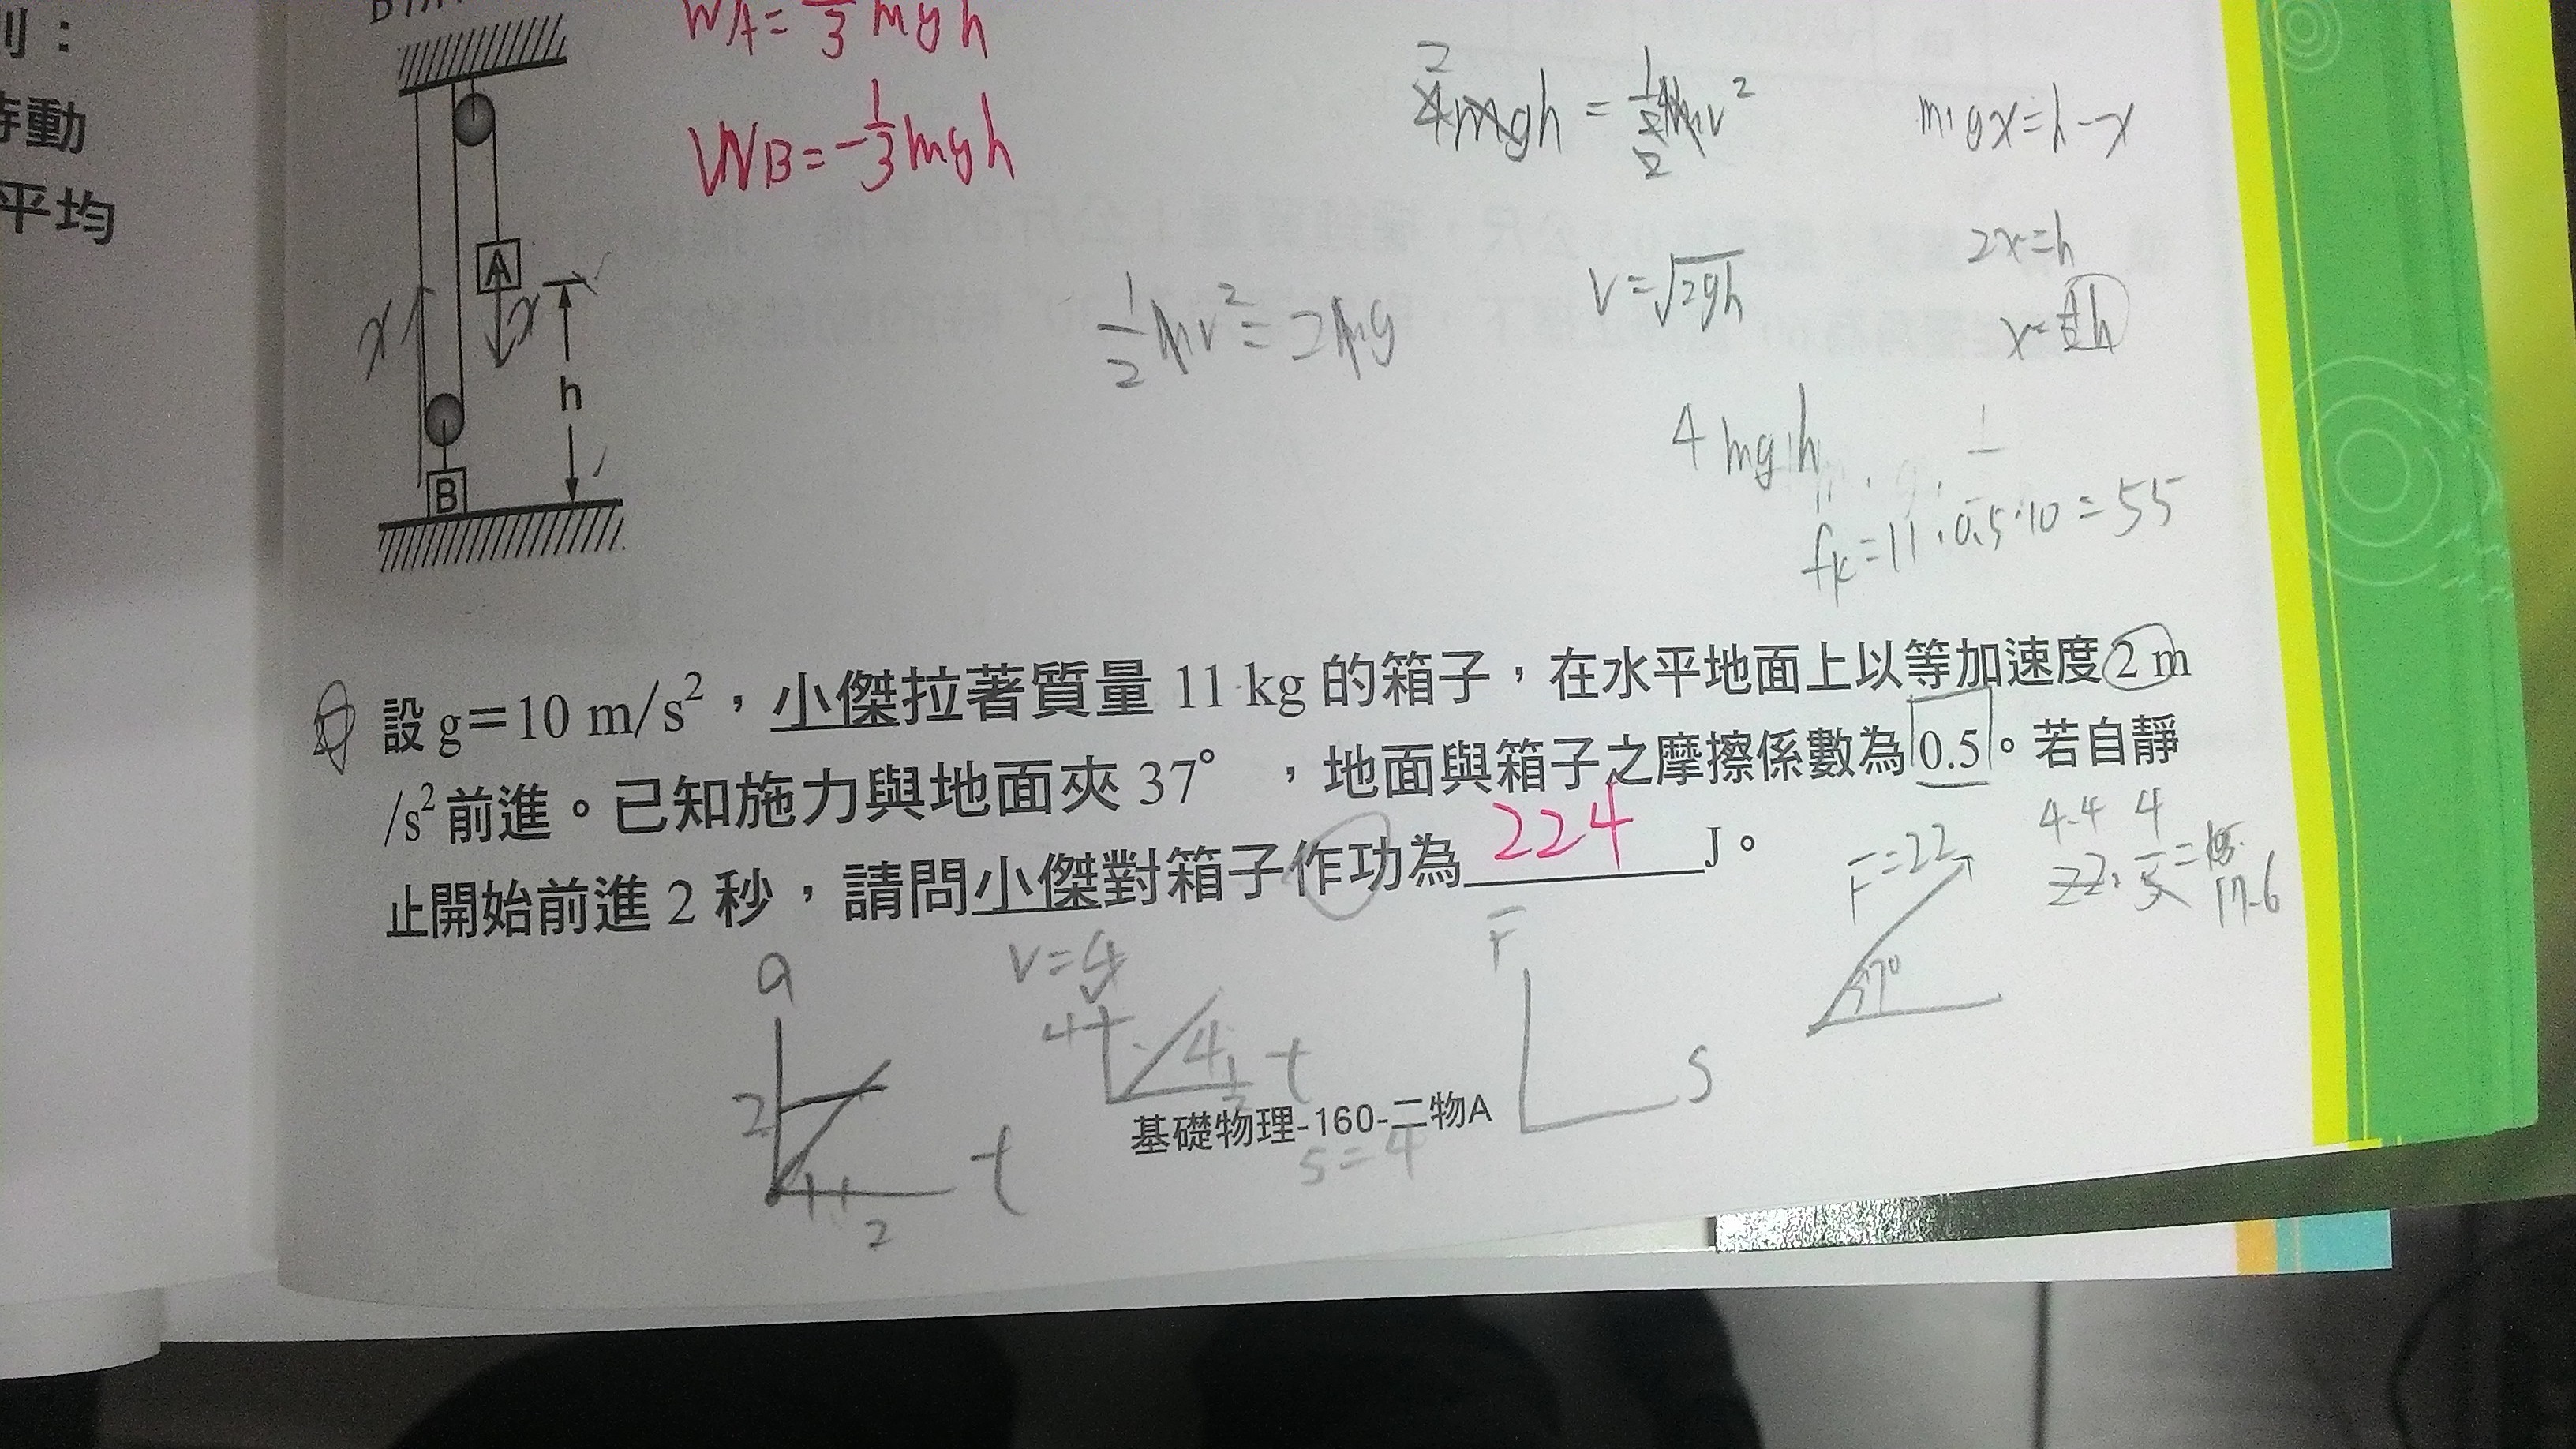 則：
時動
平均
WA=1/3mgh
WB=-1/3mgh
2
4mgh=1/2 4mv²
m1gx=h-x
2x=h
v=√2gh
x=1/2h
1/2mv²=2mg
A
x
x
h
B
4mgh
fk=11·0.5·10=55
設g＝10 m/s²，小傑拉著質量 11 kg 的箱子，在水平地面上以等加速度2 m
/s²前進。已知施力與地面夾 37°，地面與箱子之摩擦係數為0.5。若自靜
止開始前進 2 秒，請問小傑對箱子作功為224J。
4.4 4
22·4/5=
17.6
F=22
37°
a
2
t
2
v=4
4
4
t
2
F
S
基礎物理-160-二物A
s=4